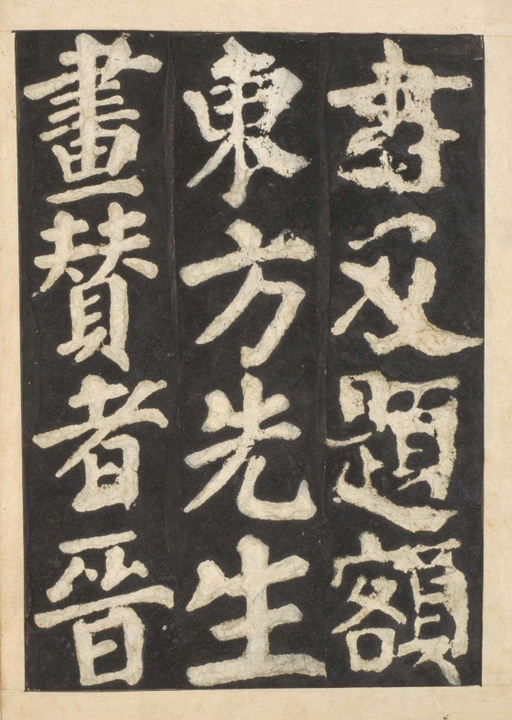 書及題額
東方先生
畫賛者晉